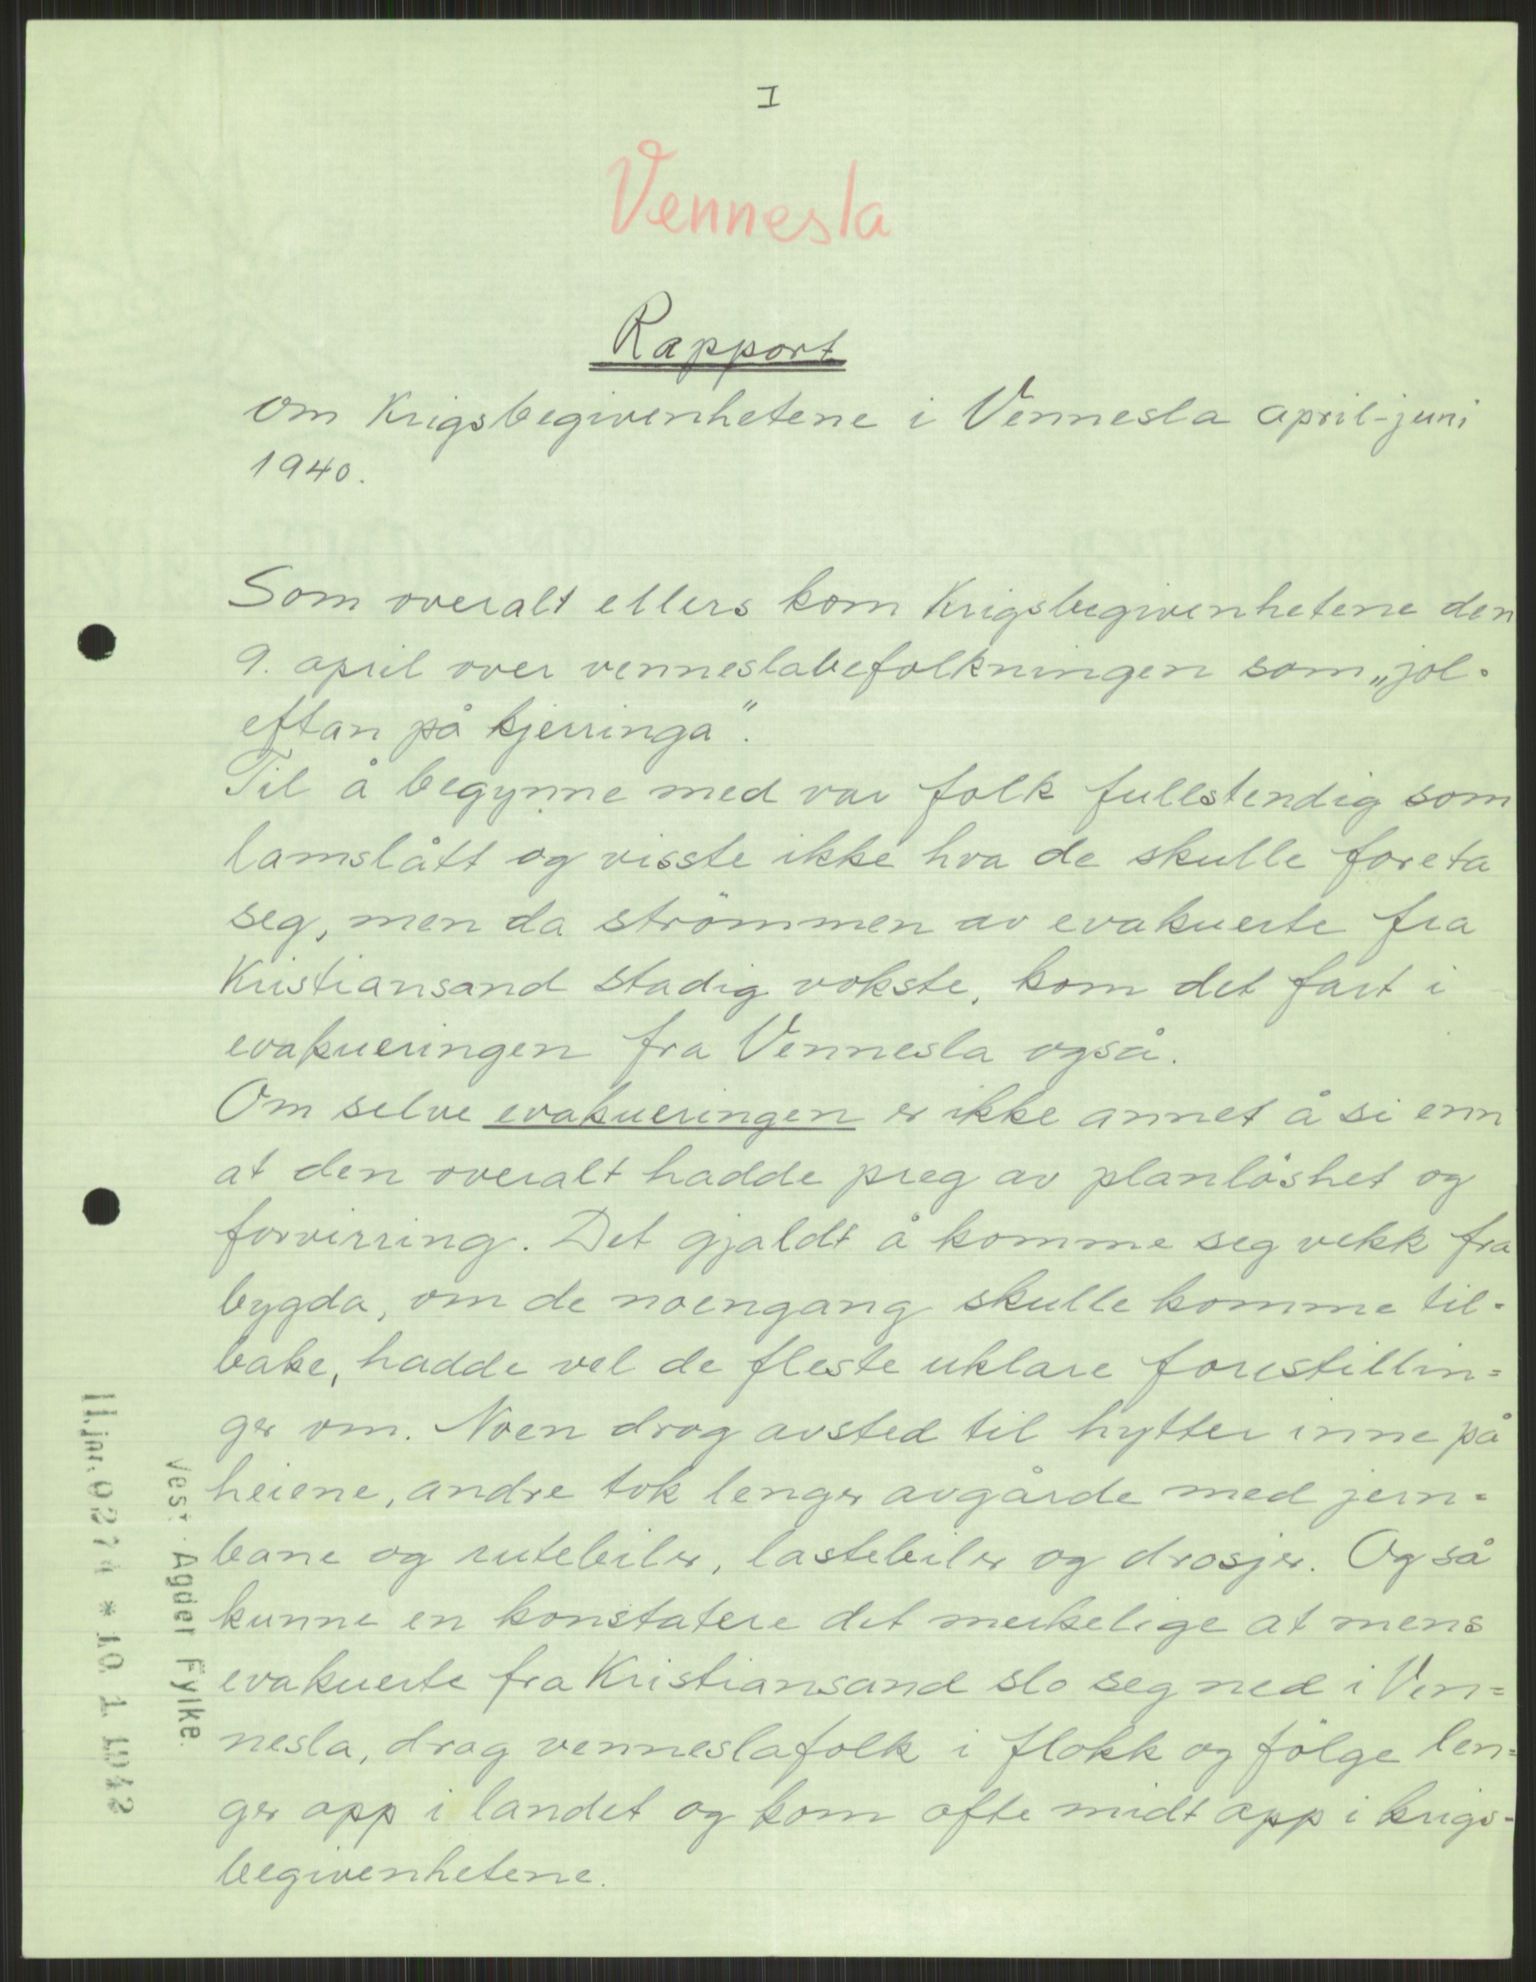 I
Vennesla
Rapport
om Krigsbegivenhetene i Vennesla april-juni
1940.
Som overalt ellers kom Krigsbegivenhetene den
9. april over venneslabefolkningen som „jol-
eftan på kjerringa”.
Til å begynne med var folk fullstendig som
lamslått og visste ikke hva de skulle foreta
seg, men da strömmen av evakuerte fra
Kristiansand stadig vokste, kom det fart i
evakueringen fra Vennesla også.
Om selve evakueringen er ikke annet å si enn
at den overalt hadde preg av planlöshet og
forvirring. Det gjaldt å komme seg vekk fra
bygda, om de noengang skulle komme til-
bake, hadde vel de fleste uklare forestillin=
ger om. Noen drog avsted til hytter inne på
heiene, andre tok lenger avgårde med jern=
bane og rutebiler, lastebiler og drosjer. Også
kunne en konstatere det merkelige at mens
evakuerte fra Kristiansand slo seg ned i Ven=
nesla, drog venneslafolk i flokk og fölge len=
ger opp i landet og kom ofte midt opp i krigs-
begivenhetene.
Vest-Agder Fylke.
* 10. 1. 1942